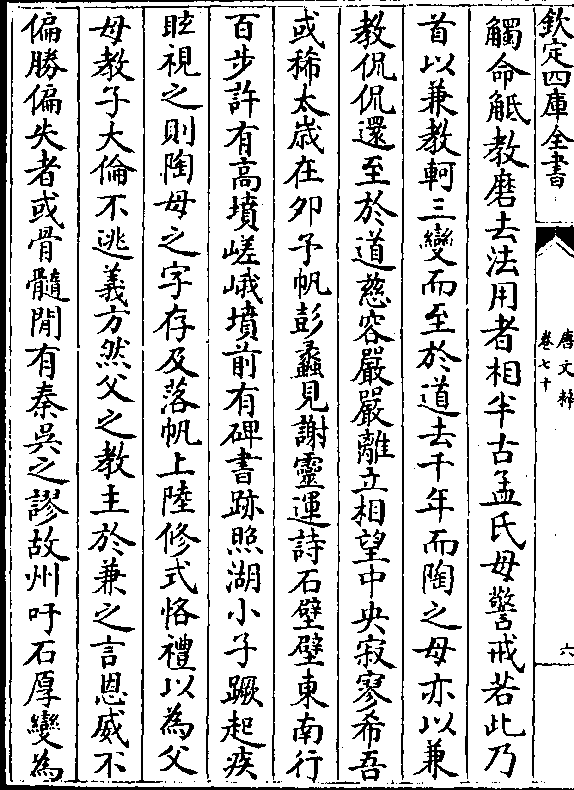 欽定四庫全書
唐文粹
卷七十
六
觸命觝教磨去法用者相半古孟氏母警戒若此乃
首以兼教軻三變而至於道去千年而陶之母亦以兼
教侃侃還至於道慈容嚴嚴離立相望中央寂寥希吾
或稀太歳在夘子帆彭蠡見謝靈運詩石壁壁東南行
百步許有高墳嵯峨墳前有碑書跡照湖小子蹶起疾
眂視之則陶母之字存及落帆上陸修式恪禮以為父
母教子大倫不逃義方然父之教主於兼之言恩威不
偏勝偏失者或骨髓閒有秦吳之謬故州吁石厚變為